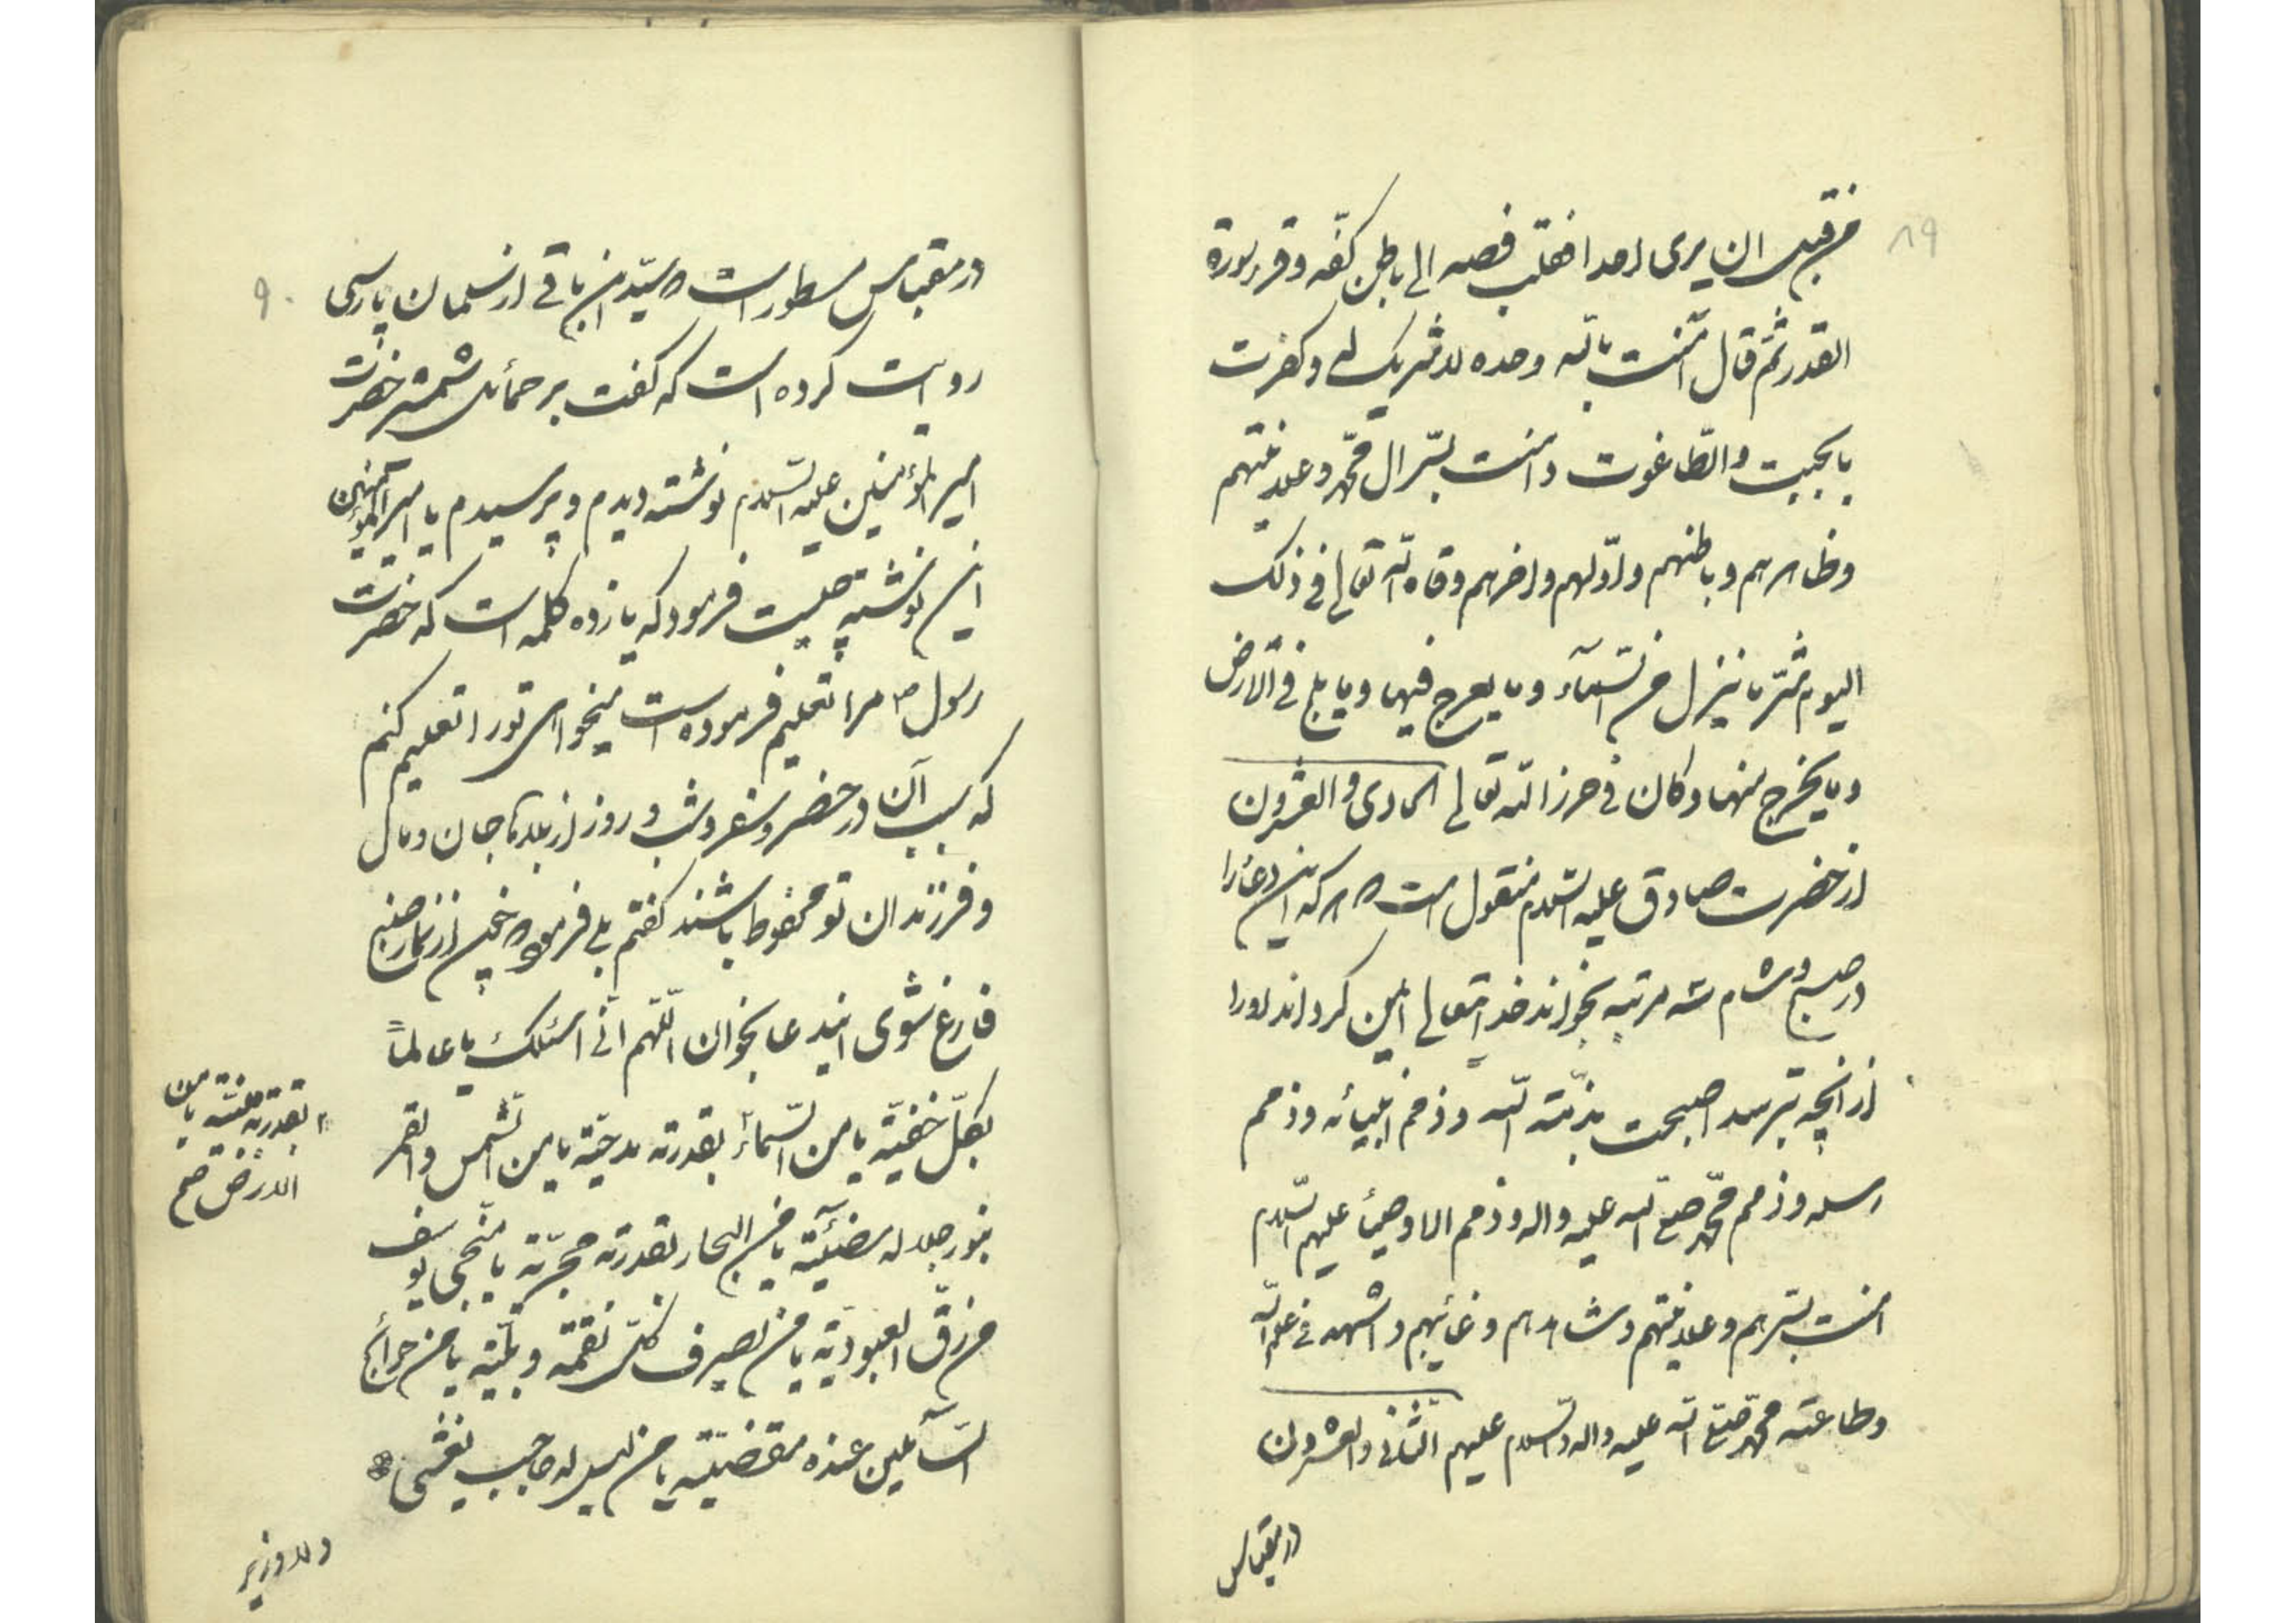 ۸۹
من قبل ان یری احدا فقلب فصه الی باطن کفه وقرء سورة
القدر ثم قال آمنت بالله وحده لا شریک له وکفرت
بالجبت والطاغوت وامنت بسر ال محمد وعلانیتهم
وظاهرهم وباطنهم واولهم واخرهم وقاه الله تعالی فی ذلک
الیوم شر ما ینزل من السمآء وما یعرج فیها وما یلج فی الارض
وما یخرج منها وکان فی حرز الله تعالی الحادی والعشرون
از حضرت صادق علیه السلام منقول است که هر که این دعا را
در صبح وشام سه مرتبه بخواند خدایتعالی ایمن گرداند اورا
از آنچه بترسد اصبحت بذمة الله وذمم انبیائه وذمم
رسله وذمم محمد صلی الله علیه واله وذمم الاوصیاء علیهم السلام
امنت بسرهم وعلانیتهم وشاهدهم وغائبهم واشهد فی علم الله
وطاعته محمد صلی الله علیه واله والسلام علیهم الثانی والعشرون
در مقباس
۹۰
در مقباس مسطور است که سید ابن باقی از سلمان پارسی
روایت کرده است که گفت بر حمائل شمشیر حضرت
امیر المؤمنین علیه السلام نوشته دیدم و پرسیدم یا امیر المؤمنین
این نوشته چیست فرمود که یازده کلمه است که حضرت
رسول ص مرا تعلیم فرموده است میخواهی تو را تعلیم کنم
که بسبب آن در حضر وسفر وشب و روز از بلاها جان ومال
وفرزندان تو محفوظ باشند گفتم بلی فرمود که چون از نماز صبح
فارغ شوی ایندعا بخوان اللهم انی اسئلک یا عالماً
بکل خفیة یا من السمآء بقدرته مدحیة یا من الشمس والقمر
بقدرته مبنیة یا من
الارض صح
بنور جلاله مضیئة یا من البحار بقدرته مجریة یا منجی یوسف
من رق العبودیة یا من یصرف کل نقمة وبلیة یا من حوائج
السآئلین عنده مقضیة یا من لیس له حاجب یغشی
ولا وزیر